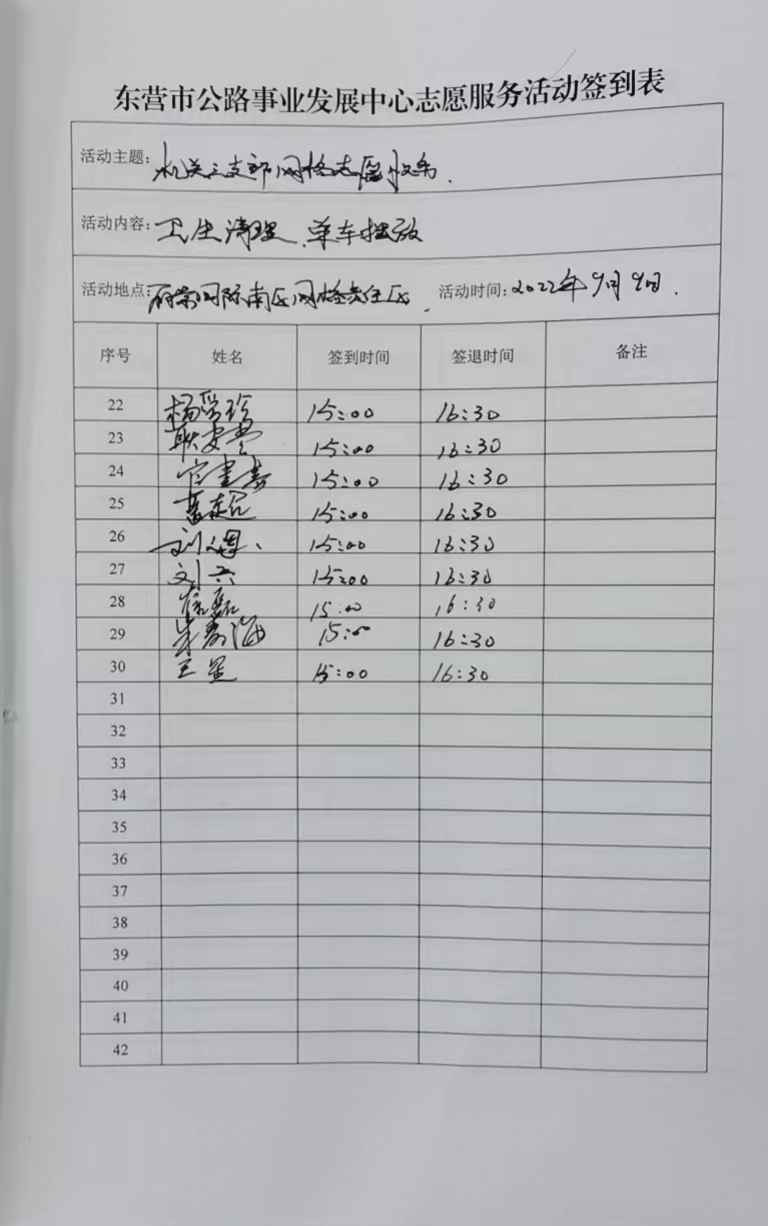 东营市公路事业发展中心志愿服务活动签到表
活动主题: 机关三支部网格志愿服务.
活动内容: 卫生清理、单车摆放
活动地点: 府前国际南区网格责任区. 活动时间: 2022年9月9日.
序号 姓名 签到时间 签退时间 备注
22 15:00 16:30
23 15:00 16:30
24 15:00 16:30
25 15:00 16:30
26 15:00 16:30
27 刘六 15:00 16:30
28 15:00 16:30
29 15:00 16:30
30 王星 15:00 16:30
31
32
33
34
35
36
37
38
39
40
41
42